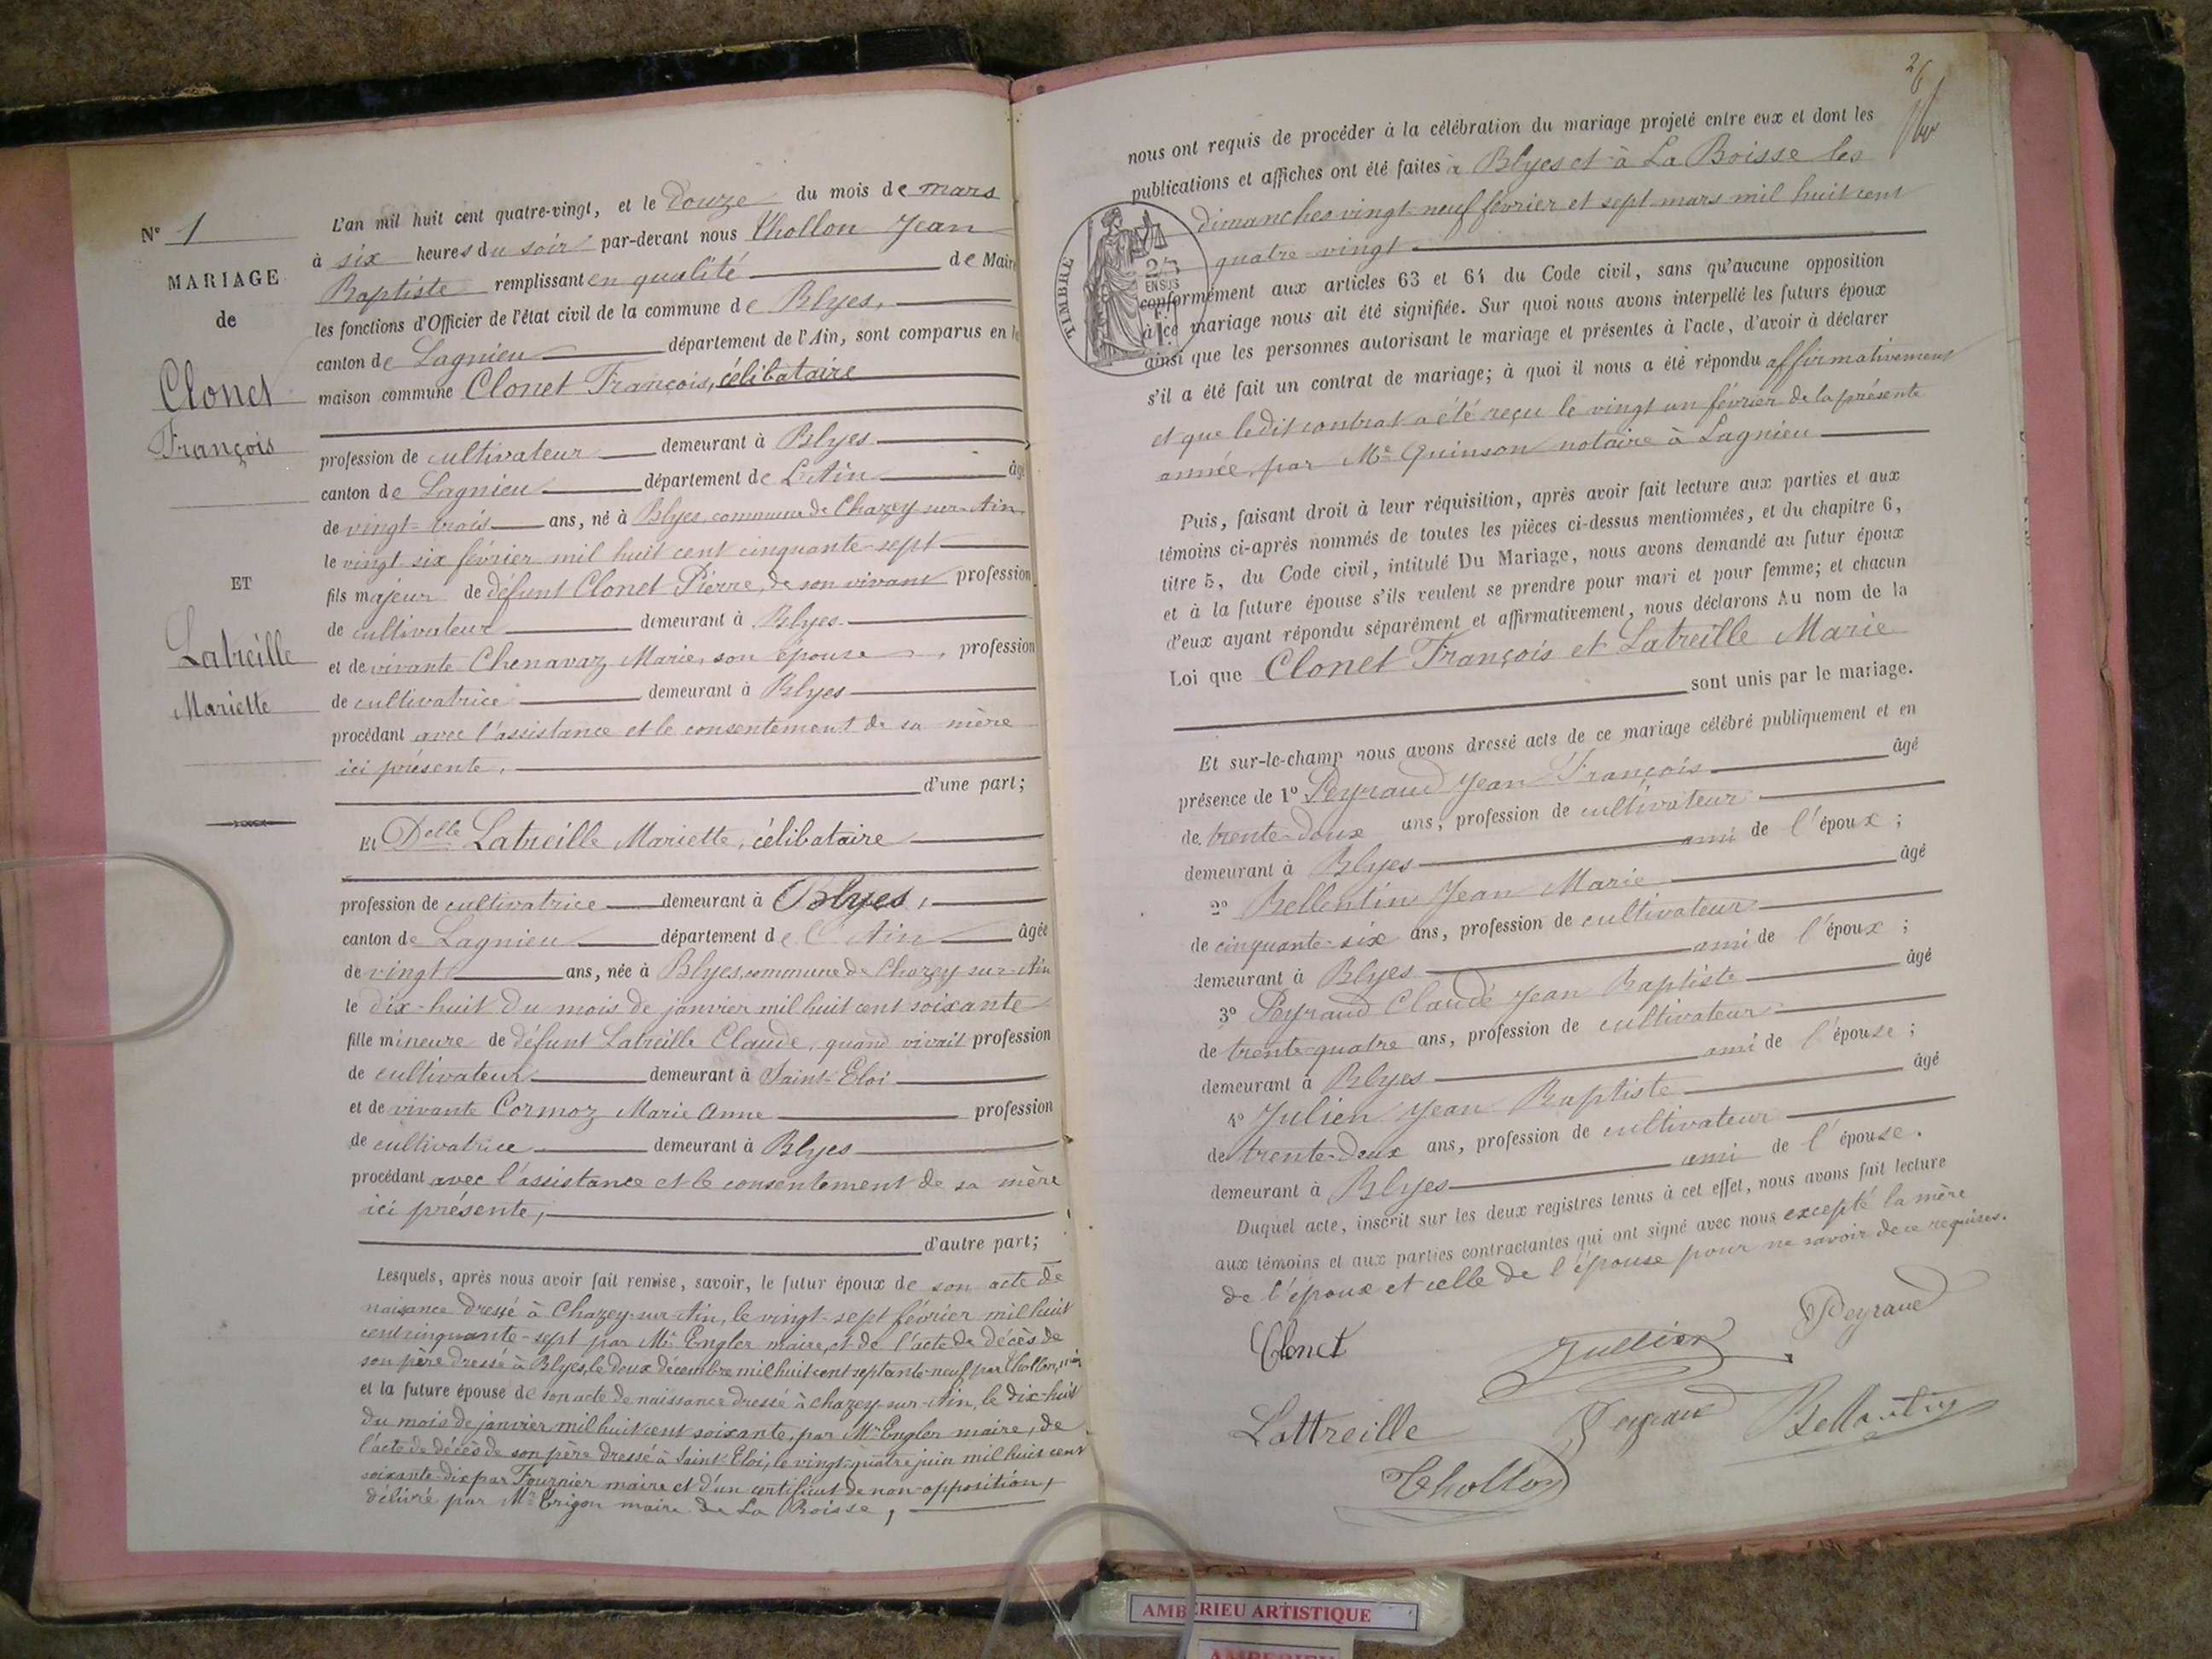 N° 1
MARIAGE
de
Clonet
François
ET
Latreille
Mariette
L'an mil huit cent quatre-vingt, et le douze du mois de mars
à six heures du soir par-devant nous Chollon Jean
Baptiste remplissant en qualité de Maire
les fonctions d'Officier de l'état civil de la commune de Blyes,
canton de Lagnieu département de l'Ain, sont comparus en la
maison commune Clonet François, célibataire
profession de cultivateur demeurant à Blyes
canton de Lagnieu département de L'Ain âgé
de vingt-trois ans, né à Blyes, commune de Chazey-sur-Ain
le vingt six février mil huit cent cinquante-sept
fils majeur de défunt Clonet Pierre, de son vivant profession
de cultivateur demeurant à Blyes
et de vivante Chenavaz Marie, son épouse, profession
de cultivatrice demeurant à Blyes
procédant avec l'assistance et le consentement de sa mère
ici présente,
d'une part;
Et Delle Latreille Mariette, célibataire
profession de cultivatrice demeurant à Blyes,
canton de Lagnieu département de l'Ain âgée
de vingt ans, née à Blyes, commune de Chazey-sur-Ain
le dix-huit du mois de janvier mil huit cent soixante
fille mineure de défunt Latreille Claude, quand vivait profession
de cultivateur demeurant à Saint-Eloi
et de vivante Cormoz Marie Anne profession
de cultivatrice demeurant à Blyes
procédant avec l'assistance et le consentement de sa mère
ici présente,
d'autre part;
Lesquels, après nous avoir fait remise, savoir, le futur époux de son acte de
naissance dressé à Chazey-sur-Ain, le vingt-sept février mil huit
cent cinquante-sept par Mr Engler maire, et de l'acte de décès de
son père dressé à Blyes, le deux décembre mil huit cent septante-neuf par Chollon,
et la future épouse de son acte de naissance dressé à chazey-sur-Ain, le dix-huit
du mois de janvier mil huit cent soixante, par Mr Engler maire, de
l'acte de décès de son père dressé à Saint-Eloi, le vingt-quatre juin mil huit cent
soixante-dix par Fournier maire et d'un certificat de non-opposition,
délivré par Mr maire de La Boisse,
26
nous ont requis de procéder à la célébration du mariage projeté entre eux et dont les
publications et affiches ont été faites à Blyes et à La Boisse les
dimanches vingt-neuf février et sept mars mil huit cent
quatre-vingt
TIMBRE
EN SUS
conformément aux articles 63 et 64 du Code civil, sans qu'aucune opposition
à ce mariage nous ait été signifiée. Sur quoi nous avons interpellé les futurs époux
ainsi que les personnes autorisant le mariage et présentes à l'acte, d'avoir à déclarer
s'il a été fait un contrat de mariage; à quoi il nous a été répondu affirmativement
et que ledit contrat a été reçu le vingt un février de la présente
année, par Me Quinson notaire à Lagnieu
Puis, faisant droit à leur réquisition, après avoir fait lecture aux parties et aux
témoins ci-après nommés de toutes les pièces ci-dessus mentionnées, et du chapitre 6,
titre 5, du Code civil, intitulé Du Mariage, nous avons demandé au futur époux
et à la future épouse s'ils veulent se prendre pour mari et pour femme; et chacun
d'eux ayant répondu séparément et affirmativement, nous déclarons Au nom de la
Loi que Clonet François et Latreille Marie
sont unis par le mariage.
Et sur-le-champ nous avons dressé acte de ce mariage célébré publiquement et en
présence de 1° Peyraud Jean François âgé
de trente-deux ans, profession de cultivateur
demeurant à Blyes ami de l'époux;
2° Bellentin Jean Marie âgé
de cinquante-six ans, profession de cultivateur
demeurant à Blyes ami de l'époux;
3° Peyraud Claude Jean Baptiste âgé
de trente-quatre ans, profession de cultivateur
demeurant à Blyes ami de l'épouse;
4° Julien Jean Baptiste âgé
de trente-deux ans, profession de cultivateur
demeurant à Blyes ami de l'épouse.
Duquel acte, inscrit sur les deux registres tenus à cet effet, nous avons fait lecture
aux témoins et aux parties contractantes qui ont signé avec nous excepté la mère
de l'époux et celle de l'épouse pour ne savoir de ce requises.
Clonet Jullien Peyraud
Lattreille Peyraud Bellantin
Chollon
AMBERIEU ARTISTIQUE
AMBERIEU